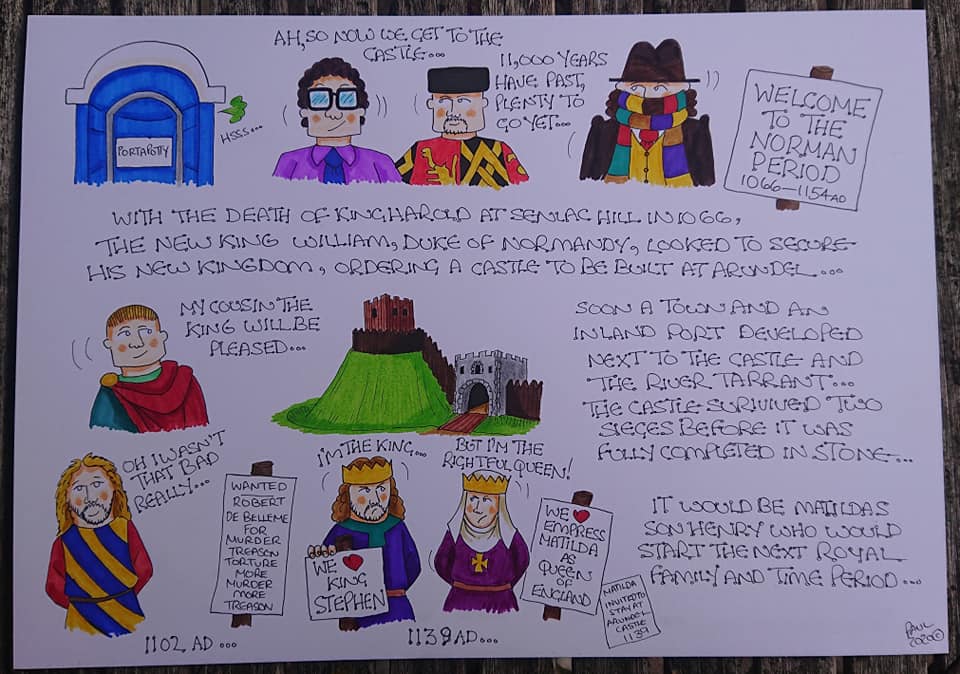 AH, SO NOW WE GET TO THE
CASTLE...
11,000 YEARS
HAVE PAST,
PLENTY TO
GO YET...
PORTAPOTTY
HSSS...
WELCOME
TO THE
NORMAN
PERIOD
1066-1154 AD
WITH THE DEATH OF KING HAROLD AT SENLAC HILL IN 1066,
THE NEW KING WILLIAM, DUKE OF NORMANDY, LOOKED TO SECURE
HIS NEW KINGDOM, ORDERING A CASTLE TO BE BUILT AT ARUNDEL...
MY COUSIN THE
KING WILL BE
PLEASED...
SOON A TOWN AND AN
INLAND PORT DEVELOPED
NEXT TO THE CASTLE AND
THE RIVER TARRANT...
THE CASTLE SURVIVED TWO
SIEGES BEFORE IT WAS
FULLY COMPLETED IN STONE...
OH I WASN'T
THAT BAD
REALLY...
WANTED
ROBERT
DE BELLEME
FOR
MURDER
TREASON
TORTURE
MORE
MURDER
MORE
TREASON
1102 AD...
I'M THE KING...
WE ❤
KING
STEPHEN
BUT I'M THE
RIGHTFUL QUEEN!
WE ❤
EMPRESS
MATILDA
AS
QUEEN
OF
ENGLAND
1139 AD...
MATILDA
INVITED TO
STAY AT
ARUNDEL
CASTLE
1139
IT WOULD BE MATILDAS
SON HENRY WHO WOULD
START THE NEXT ROYAL
FAMILY AND TIME PERIOD...
PAUL
2020©